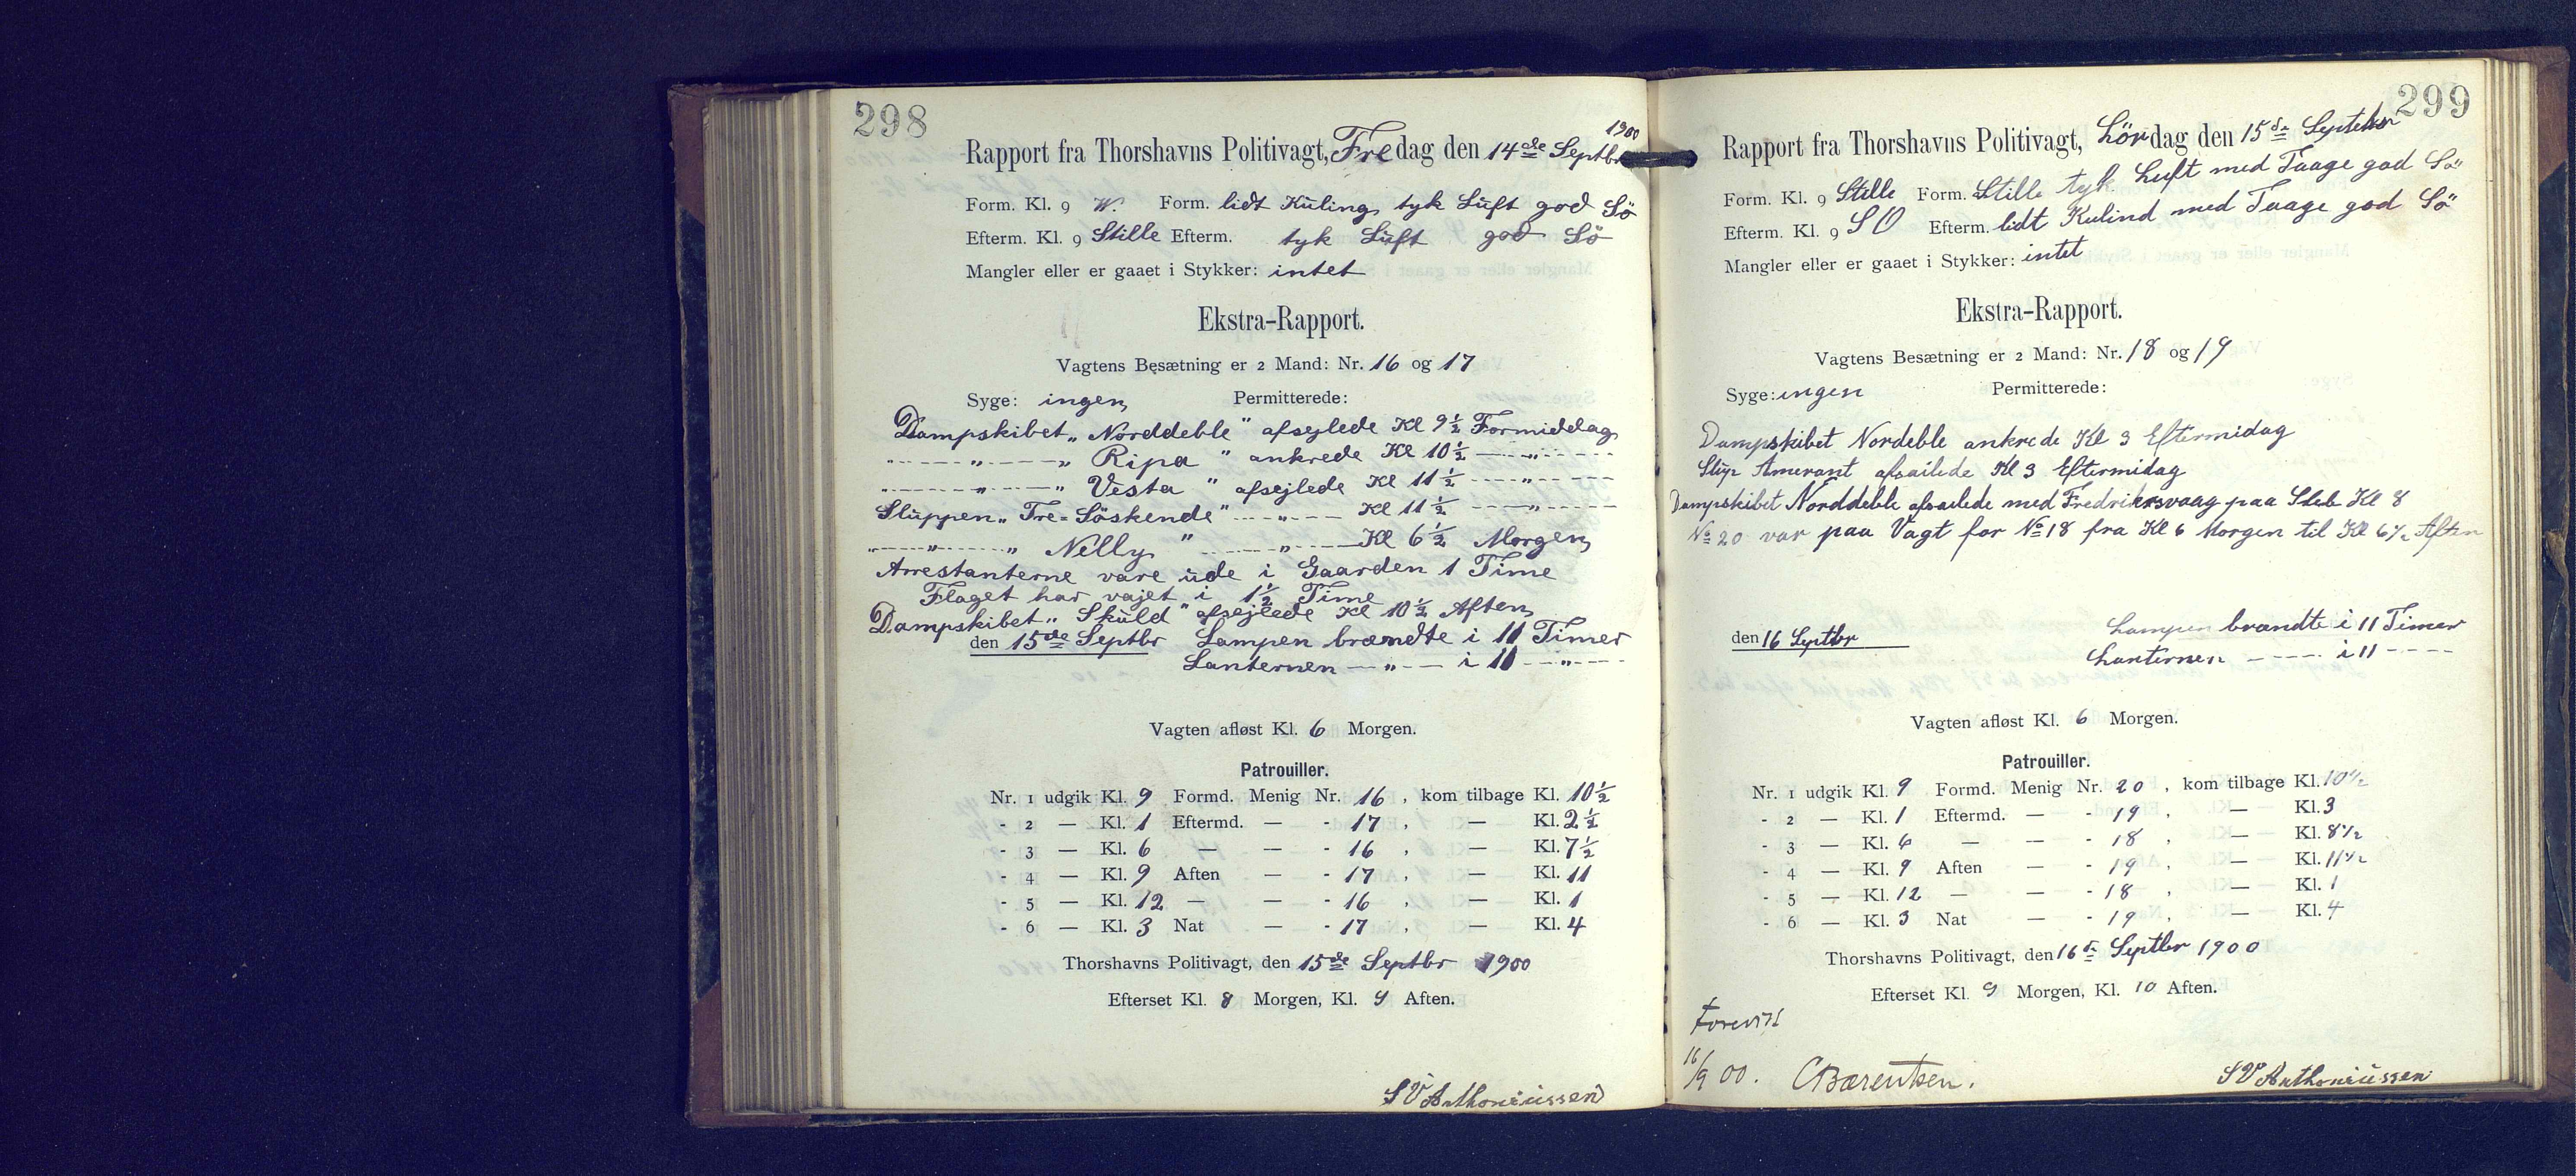 298
Rapport fra Thorshavns Politivagt, Fredag den 14de Septbr 1900
Form. Kl. 9 W. Form. lidt Kuling tyk Luft god Sö
Efterm. Kl. 9 Stille Efterm. tyk Luft god Sö
Mangler eller er gaaet i Stykker: intet
Ekstra-Rapport.
Vagtens Besætning er 2 Mand: Nr. 16 og 17
Syge: ingen Permitterede:
Dampskibet „Norddeble" afsejlede Kl 9½ Formiddag
----"----„ Ripa " ankrede Kl 10½ ---"---
----"----„ Vesta " afsejlede Kl 11½ ---"---
Sluppen „Tre=Söskende" ---"--- Kl 11½ ---"---
----"----„ Nelly " ---"--- Kl 6½ Morgen
Arrestanterne vare ude i Gaarden 1 Time
Flaget har vajet i 1½ Time
Dampskibet „Skuld" afsejlede Kl 10½ Aften
den 15de Septbr Lampen brændte i 11 Timer
Lanternen —"— i 11 —"—
Vagten afløst Kl. 6 Morgen.
Patrouiller.
Nr. 1 udgik Kl. 9 Formd. Menig Nr. 16, kom tilbage Kl. 10½
- 2 — Kl. 1 Eftermd. — - 17, — Kl. 2½
- 3 — Kl. 6 — — - 16, — Kl. 7½
- 4 — Kl. 9 Aften — - 17, — Kl. 11
- 5 — Kl. 12 — — - 16, — Kl. 1
- 6 — Kl. 3 Nat — - 17, — Kl. 4
Thorshavns Politivagt, den 15de Septbr 1900
Efterset Kl. 8 Morgen, Kl. 9 Aften.
SV Anthoniussen
299
Rapport fra Thorshavns Politivagt, Lördag den 15de Septebr
Form. Kl. 9 Stille Form. Stille tyk Luft med Taage god Sö
Efterm. Kl. 9 SO Efterm. lidt Kulind med Taage god Sö
Mangler eller er gaaet i Stykker: intet
Ekstra-Rapport.
Vagtens Besætning er 2 Mand: Nr. 18 og 19
Syge: ingen Permitterede:
Dampskibet Nordeble ankrede Kl 3 Eftermidag
Slup Amerant afsailede Kl 3 Eftermidag
Dampskibet Norddeble afsailede med Fredriksvaag paa Kl 8
No 20 var paa Vagt for No 18 fra Kl 6 Morgen til Kl 6½ Aften
Lampen brændte i 11 Timer
den 16 Septbr
Lanternen ---- i 11 ----
Vagten afløst Kl. 6 Morgen.
Patrouiller.
Nr. 1 udgik Kl. 9 Formd. Menig Nr. 20, kom tilbage Kl. 10½
- 2 — Kl. 1 Eftermd. — - 19, — Kl. 3
- 3 — Kl. 6 — — - 18, — Kl. 8½
- 4 — Kl. 9 Aften — - 19, — Kl. 11½
- 5 — Kl. 12 — — - 18, — Kl. 1
- 6 — Kl. 3 Nat — - 19, — Kl. 4
Thorshavns Politivagt, den 16de Septbr 1900
Efterset Kl. 9 Morgen, Kl. 10 Aften.
Forevist
16/9 00. CBærentsen.
SV Anthoniussen